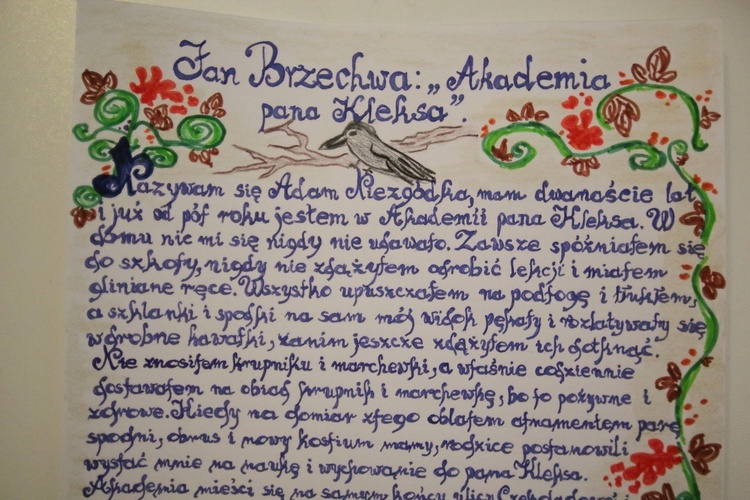 Jan Brzechwa: „Akademia
pana Kleksa”.
Nazywam się Adam Niezgódka, mam dwanaście lat
i już od pół roku jestem w Akademii pana Kleksa. W
domu nic mi się nigdy nie udawało. Zawsze spóźniałem się
do szkoły, nigdy nie zdążyłem odrobić lekcji i miałem
gliniane ręce. Wszystko upuszczałem na podłogę i tłukłem,
a szklanki i spodki na sam mój widok pękały i rozlatywały się
w drobne kawałki, zanim jeszcze zdążyłem ich dotknąć.
Nie znosiłem krupniku i marchewki, a właśnie codziennie
dostawałem na obiad krupnik i marchewkę, bo to pożywne i
zdrowe. Kiedy na domiar złego oblałem atramentem parę
spodni, obrus i nowy kostium mamy, rodzice postanowili
wysłać mnie na naukę i wychowanie do pana Kleksa.
Akademia mieści się na samym końcu ulicy Czekoladowej